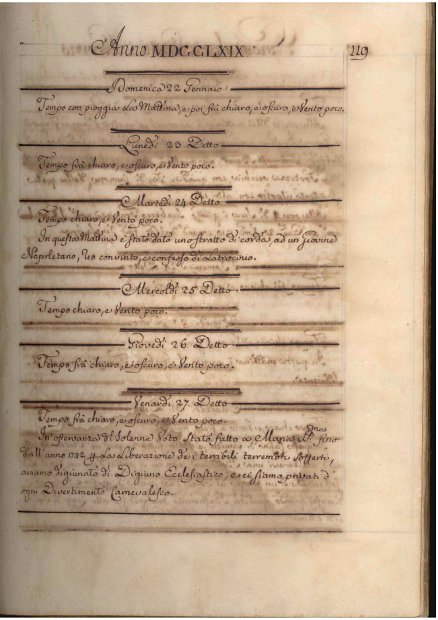 Anno MDCCLXIX
119
Domenica 22 Gennaio
Tempo con pioggia la Mattina, e poi frà chiaro, e oscuro, e Vento poco.
Lunedì 23. Detto
Tempo frà chiaro, e oscuro, e Vento poco.
Martedì 24 Detto
Tempo chiaro, e Vento poco.
In questa Mattina è stato dato uno stratto di corda, ad un Giovine
Napoletano, reo convinto, e confesso di Latrocinio.
Mercoldì 25 Detto
Tempo chiaro, e Vento poco.
Giovedì 26 Detto
Tempo frà chiaro, e oscuro, e Vento poco.
Venardì 27. Detto
Tempo frà chiaro, e oscuro, e Vento poco.
In' osservanza di Solenne Voto Stato fatto a Maria fino
dall'anno 1742 La Liberazione de i terribili terremoti Sofferti,
aviamo Digiuno Ecclesiastico, e ci siamo privati d'
ogni Divertimento Carnevalesco.